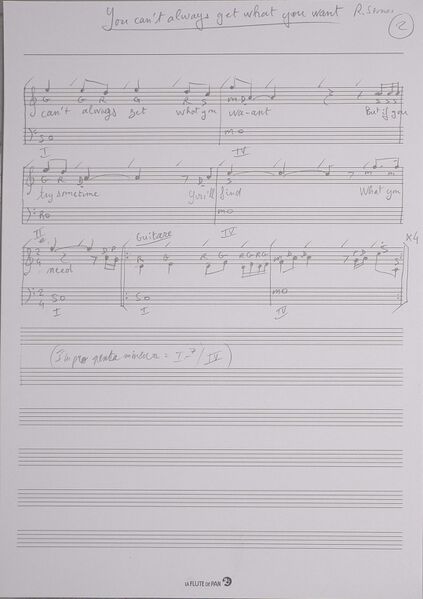 You can't always get what you want R. Stones 2
G G R G R S m D S S S S
can't always get what you wa-ant But if you
So mo
I IV
G R D D S m m
try sometime You'll find What you
Ro mo
II IV
Guitare x4
need
2 4 So So mo
I I IV
(Impro penta mineure = I 7 / IV)
LA FLUTE DE PAN